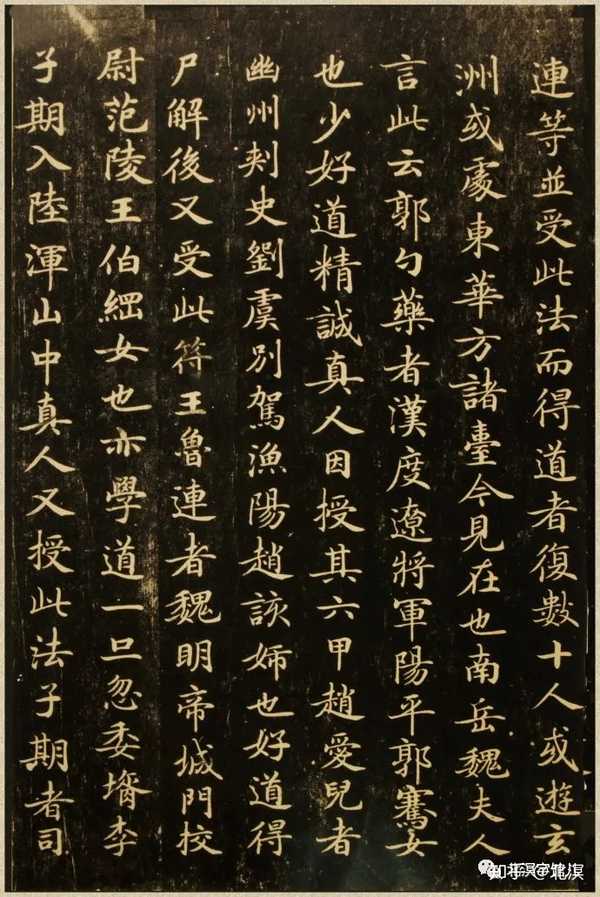 連等並受此法而得道者復數十人或遊玄
洲或處東華方諸臺今見在也南岳魏夫人
言此云郭勺藥者漢度遼將軍陽平郭騫女
也少好道精誠真人因授其六甲趙愛兒者
幽州刾史劉虞別駕漁陽趙該婦也好道得
尸解後又受此符王魯連者魏明帝城門校
尉范陵王伯綱女也亦學道一旦忽委壻李
子期入陸渾山中真人又授此法子期者司
知乎 @北溟